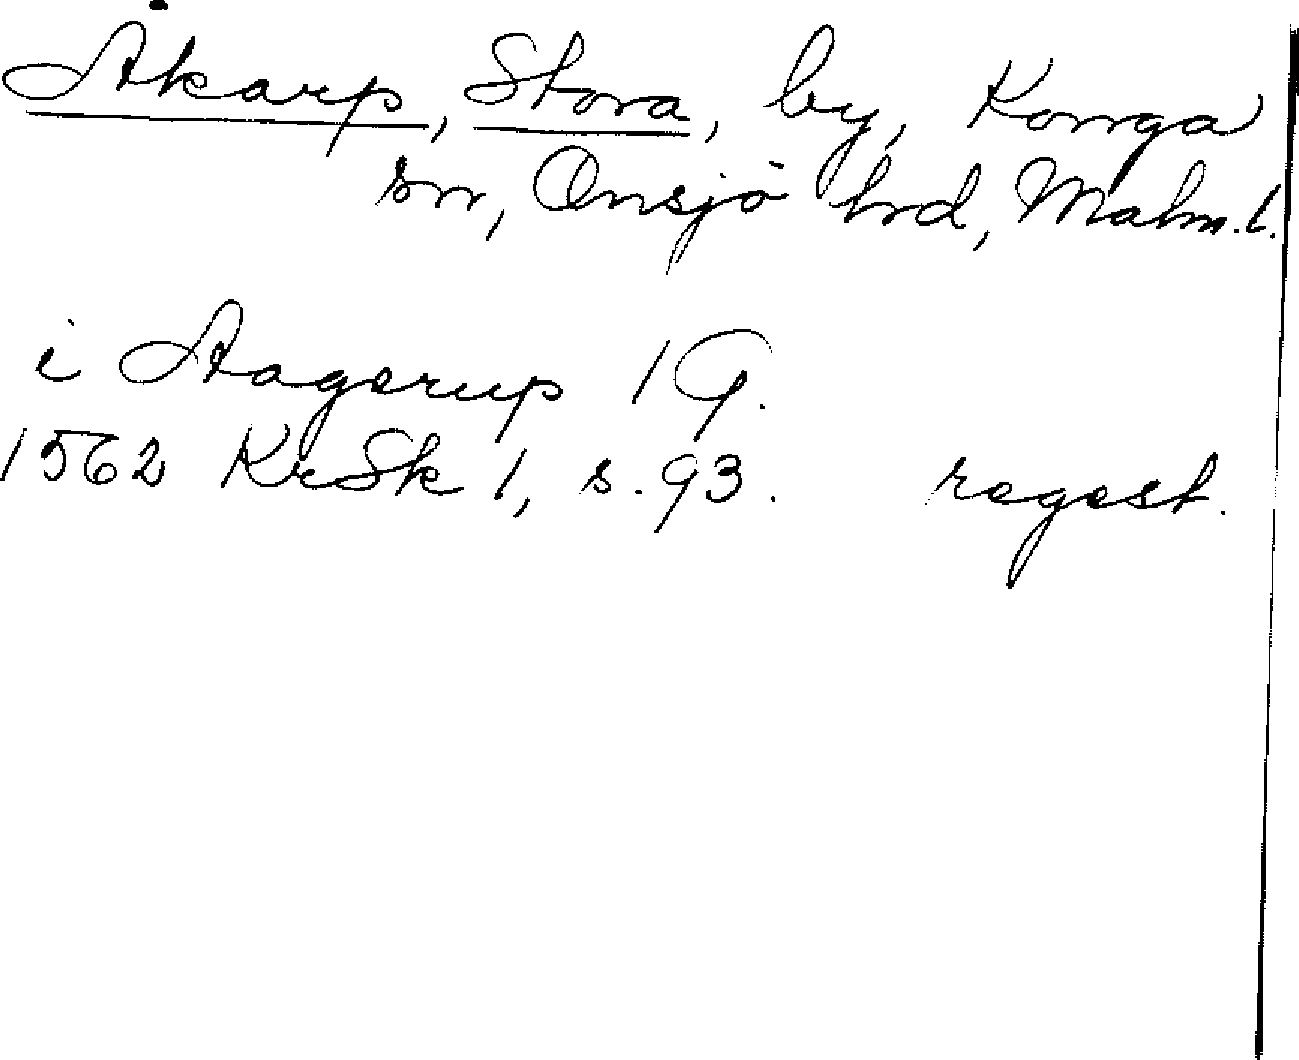 Åkarp, Stora, by, Konga
sn, Onsjö hrd, Malm.l.
i Aagerup 1 G.
1562 KrSk 1, s. 93. regest.